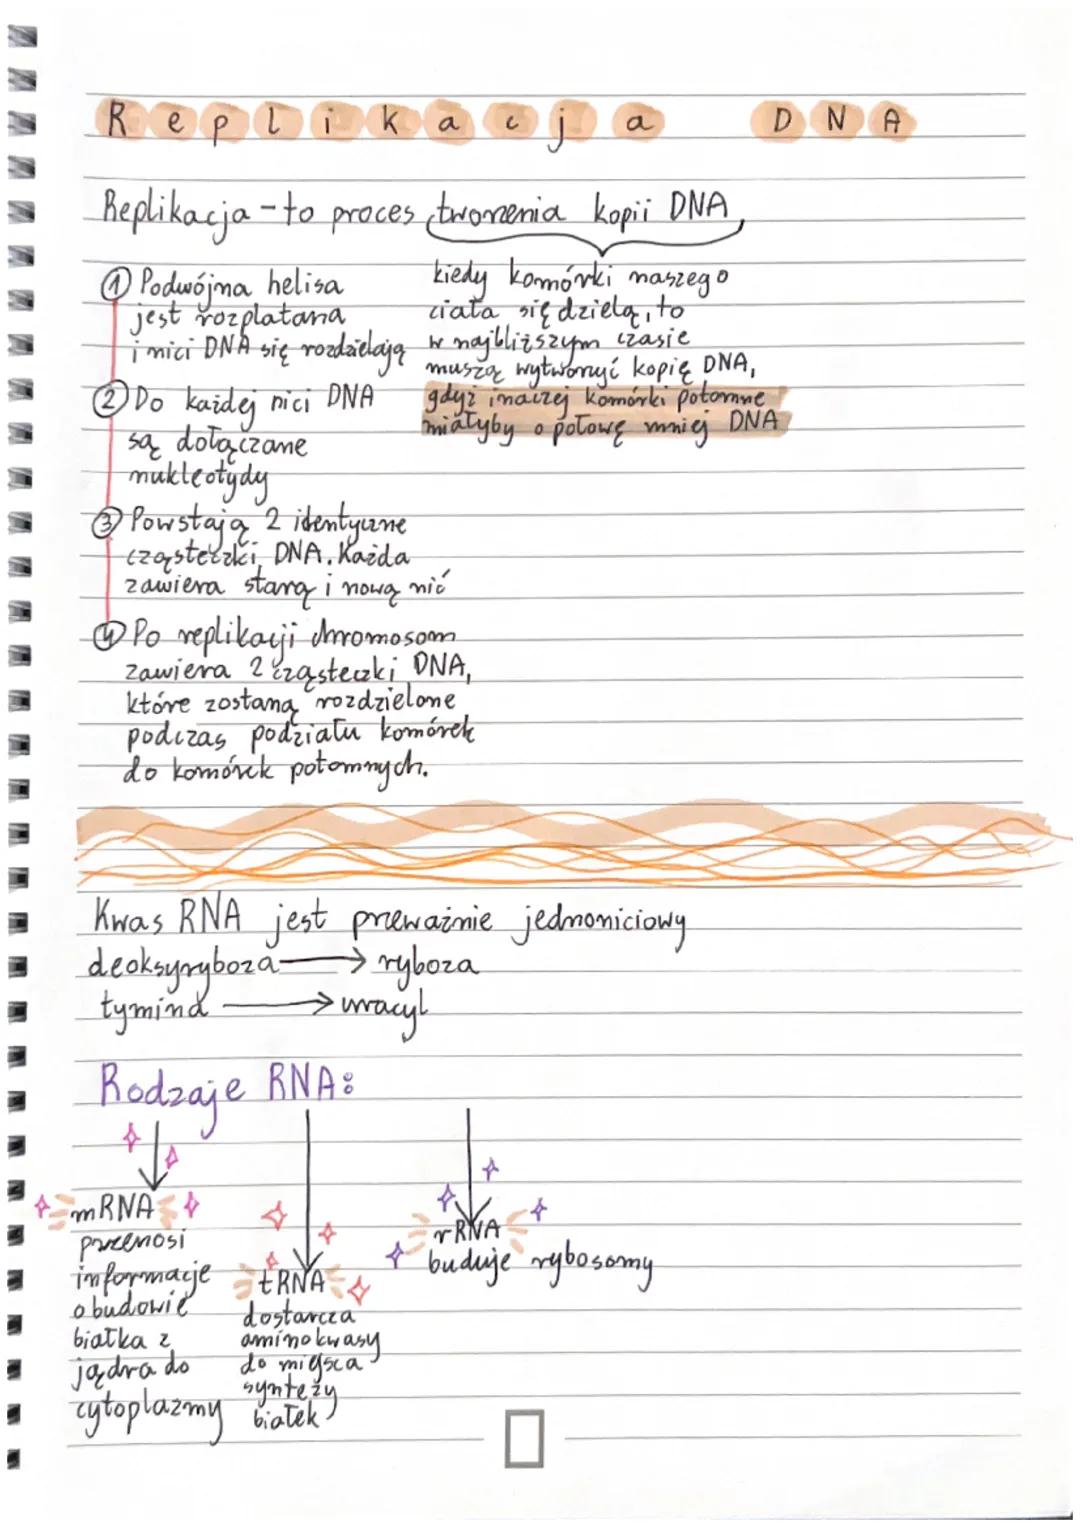 Replikacja DNA
Replikacja - to proces tworzenia kopii DNA
kiedy komórki naszego
ciała się dzielą, to
w najbliższym czasie
muszą wytworzyć kopię DNA,
gdyż inaczej komórki potomne
miałyby o połowę mniej DNA
1 Podwójna helisa
jest rozplatana
i nici DNA się rozdzielają
2 Do każdej nici DNA
są dołączane
nukleotydy
3 Powstają 2 identyczne
cząsteczki DNA. Każda
zawiera starą i nową nić
4 Po replikacji chromosom
zawiera 2 cząsteczki DNA,
które zostaną rozdzielone
podczas podziału komórek
do komórek potomnych.
Kwas RNA jest przeważnie jednoniciowy
deoksyryboza → ryboza
tymina → uracyl
Rodzaje RNA:
mRNA
przenosi
informacje
o budowie
białka z
jądra do
cytoplazmy
tRNA
dostarcza
aminokwasy
do miejsca
syntezy
białek
rRNA
buduje rybosomy